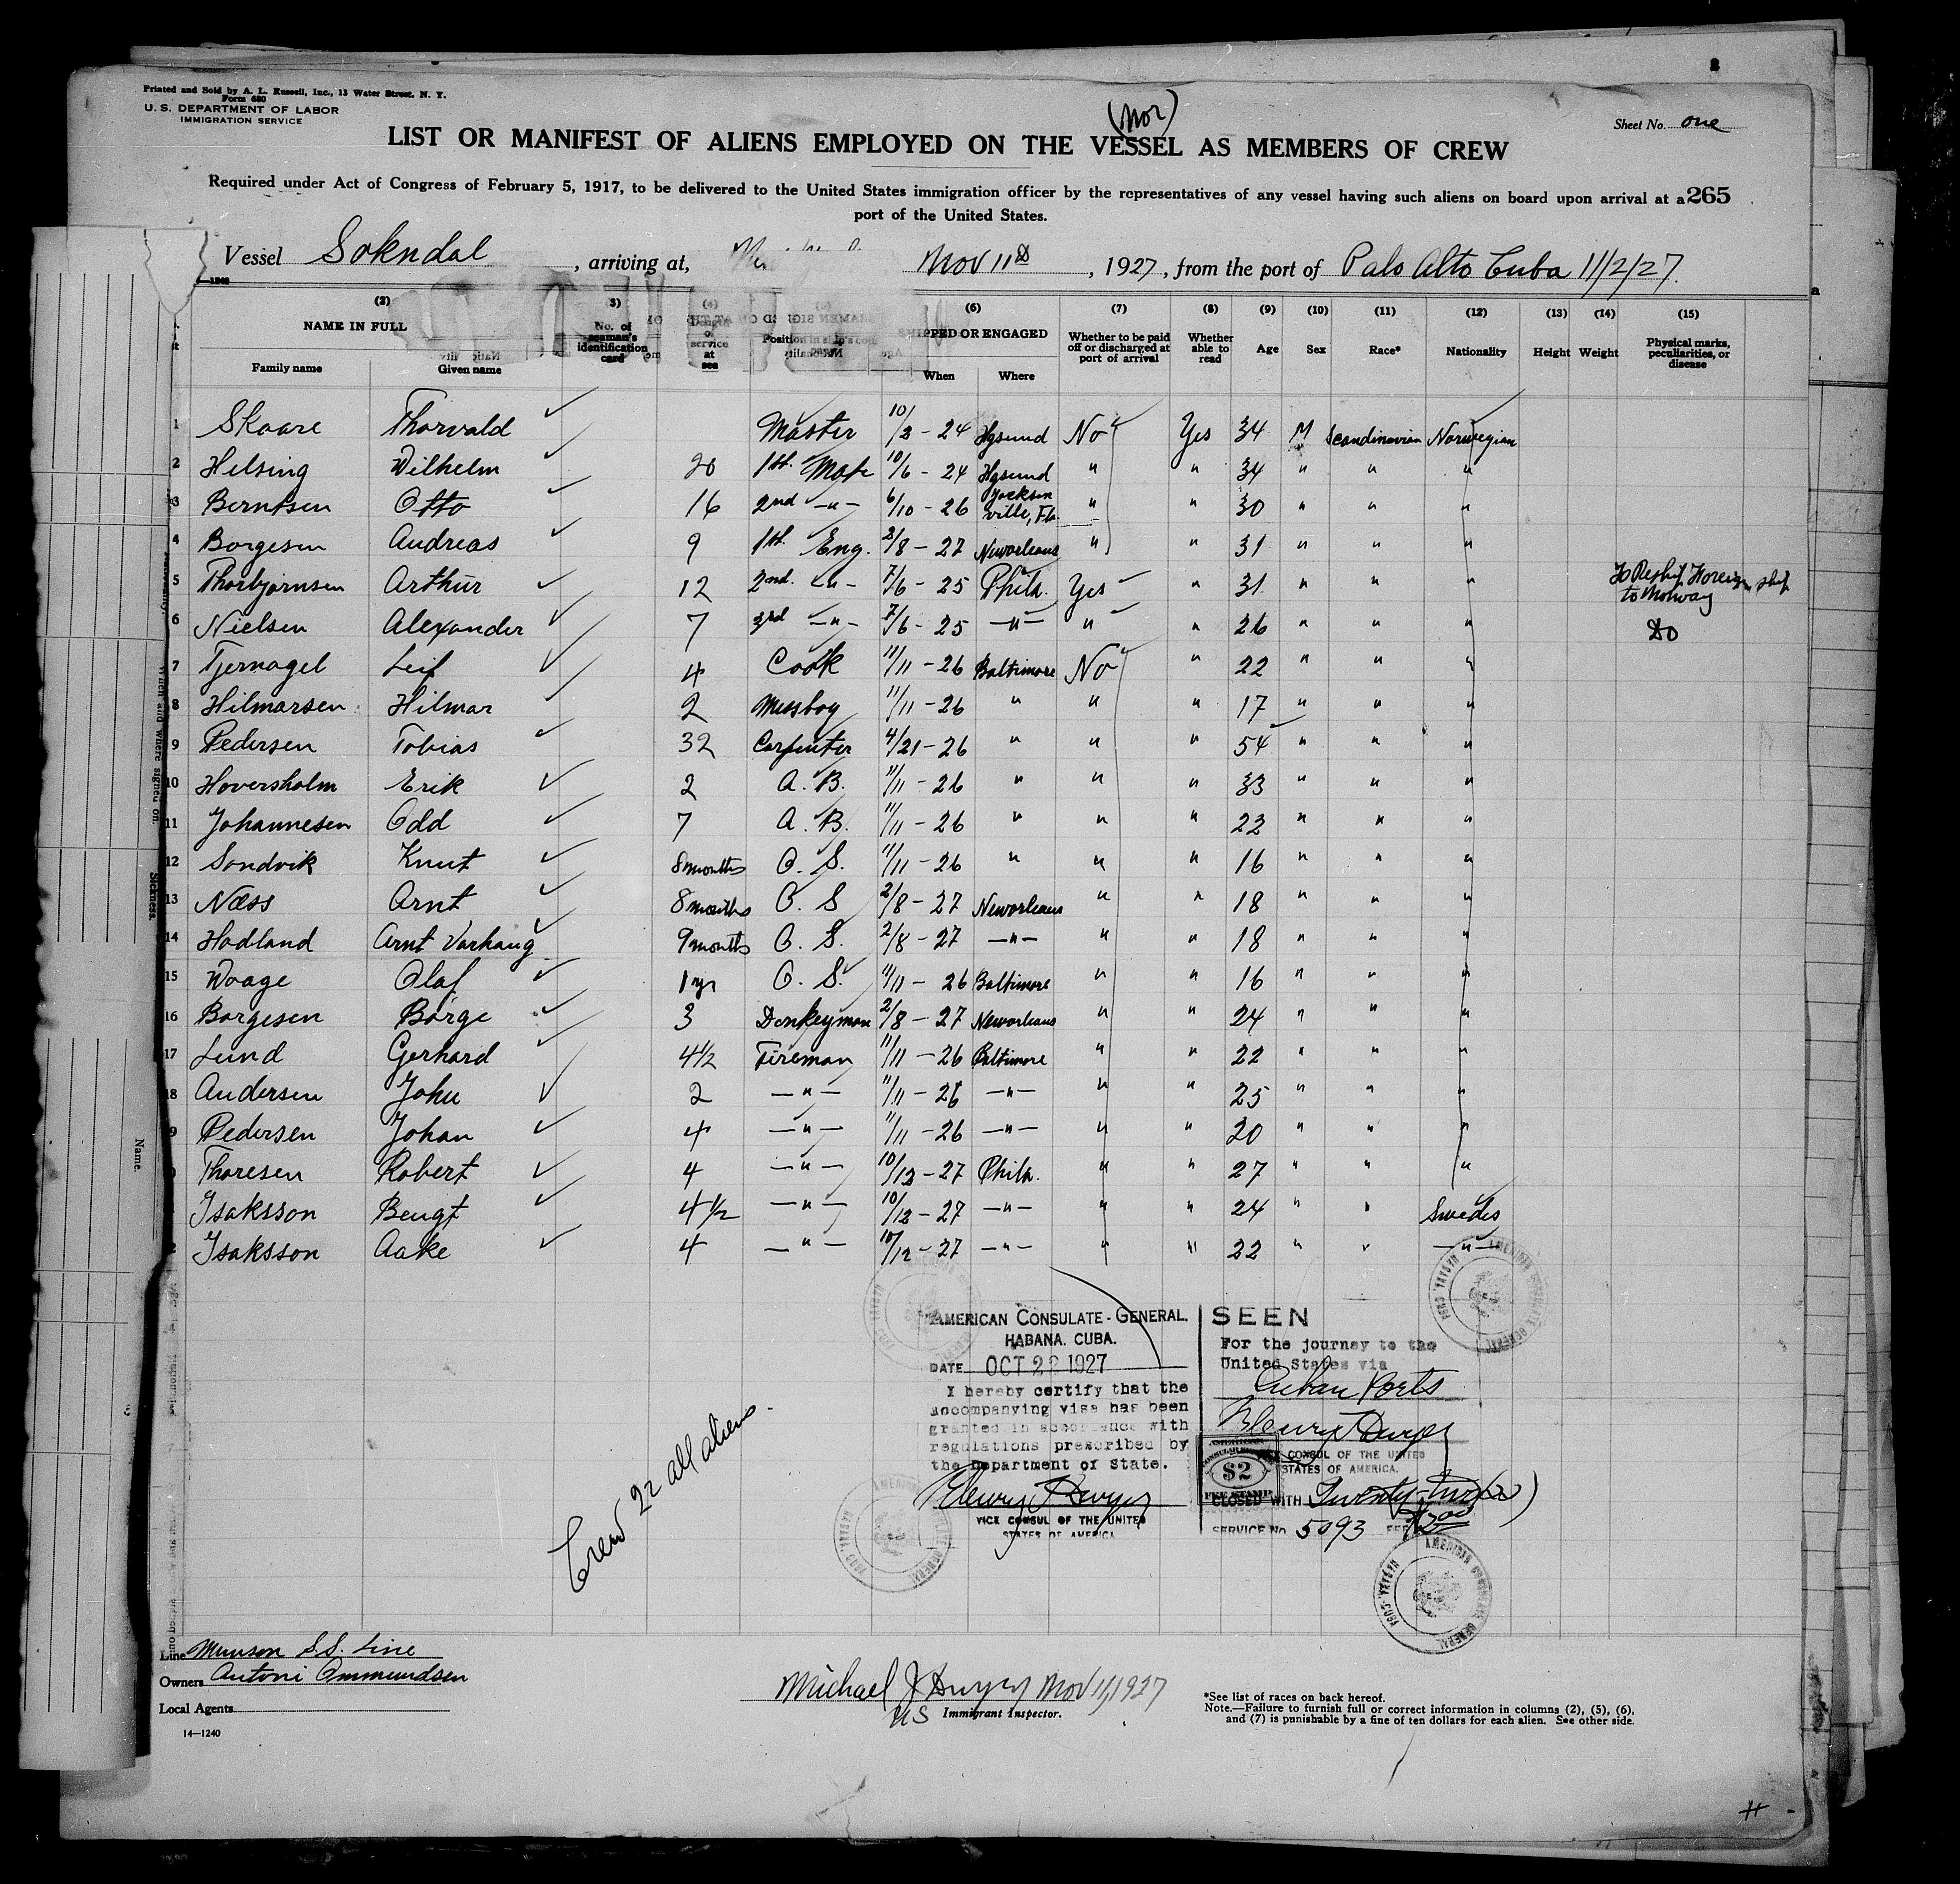 2
Printed and Sold by A. L. Russell, Inc., 13 Water Street, N. Y.
Form 680
U. S. DEPARTMENT OF LABOR
IMMIGRATION SERVICE
Sheet No. one
(Nor)
LIST OR MANIFEST OF ALIENS EMPLOYED ON THE VESSEL AS MEMBERS OF CREW
Required under Act of Congress of February 5, 1917, to be delivered to the United States immigration officer by the representatives of any vessel having such aliens on board upon arrival at a 265
port of the United States.
Vessel Sokndal, arriving at, Nov 11th, 1927, from the port of Palo Alto Cuba 11/2/27.
(2) (3) (4) (6) (7) (8) (9) (10) (11) (12) (13) (14) (15)
NAME IN FULL No. of seaman's identification card Length of service at sea Position in ship's SHIPPED OR ENGAGED Whether to be paid off or discharged at port of arrival Whether able to read Age Sex Race* Nationality Height Weight Physical marks, peculiarities, or disease
Family name Given name When Where
1 Skaare Thorvald Master 10/2 - 24 Hgsund No Yes 34 M Scandinavian Norwegian
2 Helsing Wilhelm 20 1th. Mate 10/6 - 24 Hgsund " " 34 " " "
3 Berntsen Otto 16 2nd -"- 6/10 - 26 Jacksonville, Fla. " " 30 " " "
4 Borgesen Andreas 9 1th. Eng. 2/8 - 27 Neworleans " " 31 " " "
5 Thorbjornsen Arthur 12 2nd. -"- 7/6 - 25 Phila. Yes " 31 " " " To Reship Foreign ship to Norway
6 Nielsen Alexander 7 3rd -"- 7/6 - 25 -"- " " 26 " " " Do
7 Tjernagel Leif 4 Cook 11/11 - 26 Baltimore No " 22 " " "
8 Hilmarsen Hilmar 2 Messboy 11/11 - 26 " " " 17 " " "
9 Pedersen Tobias 32 Carpenter 4/21 - 26 " " " 54 " " "
10 Hoversholm Erik 2 A. B. 11/11 - 26 " " " 33 " " "
11 Johannesen Odd 7 A. B. 11/11 - 26 " " " 22 " " "
12 Sandvik Knut 8 months O. S. 11/11 - 26 " " " 16 " " "
13 Næss Arnt 8 months O. S 2/8 - 27 Neworleans " " 18 " " "
14 Hadland Arnt Varhaug 9 months O. S. 2/8 - 27 -"- " " 18 " " "
15 Waage Olaf 1 yr O. S. 11/11 - 26 Baltimore " " 16 " " "
16 Borgesen Børge 3 Donkeyman 2/8 - 27 Neworleans " " 24 " " "
17 Lund Gerhard 4 1/2 Fireman 11/11 - 26 Baltimore " " 22 " " "
18 Andersen John 2 -"- 11/11 - 26 -"- " " 25 " " "
9 Pedersen Johan 4 -"- 11/11 - 26 -"- " " 20 " " "
Thoresen Robert 4 -"- 10/12 - 27 Phila. " " 27 " " "
Isaksson Bengt 4 1/2 -"- 10/12 - 27 -"- " " 24 " " Swedis
2 Isaksson Aake 4 -"- 10/12 - 27 -"- " " 22 " " -"-
AMERICAN CONSULATE-GENERAL.
HABANA. CUBA.
DATE OCT 22 1927
I hereby certify that the
accompanying visa has been
granted in accordence with
regulations prescribed by
the Department of State.
Henry T Dwyer
VICE CONSUL OF THE UNITED
STATES OF AMERICA
SEEN
For the journey to the
United States via
Cuban Ports
Henry T Dwyer
CONSUL OF THE UNITED
STATES OF AMERICA.
AMERICAN
CONSULAR SERVICE
$2
FEE STAMP
CLOSED WITH Twenty-two (22)
SERVICE No. 5093 FEE $2.00
AMERICAN CONSULATE GENERAL
Crew 22 all aliens.
Line Munson S.S. Line
Owners Antoni Ommundsen
Local Agents
14—1240
Michael J Dwyer Nov 11, 1927
US Immigrant Inspector.
*See list of races on back hereof.
Note.—Failure to furnish full or correct information in columns (2), (5), (6),
and (7) is punishable by a fine of ten dollars for each alien. See other side.
When and where signed on.
Sickness.
Name.